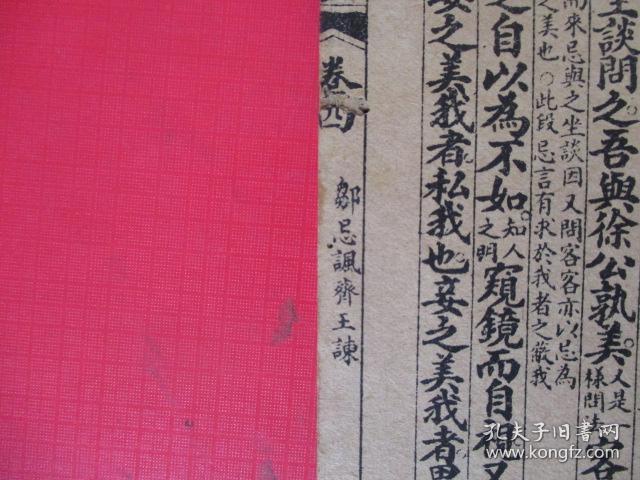 坐談問之。吾與徐公孰美。又是
樣問法客
而來忌與之坐談因又問客客亦以忌為
之美也○此段忌言有求於我者之蔽我
之自以為不如。知人
之明窺鏡而自視又
之美我者私我也。妾之美我者畏
卷四
鄒忌諷齊王諫
孔夫子旧书网